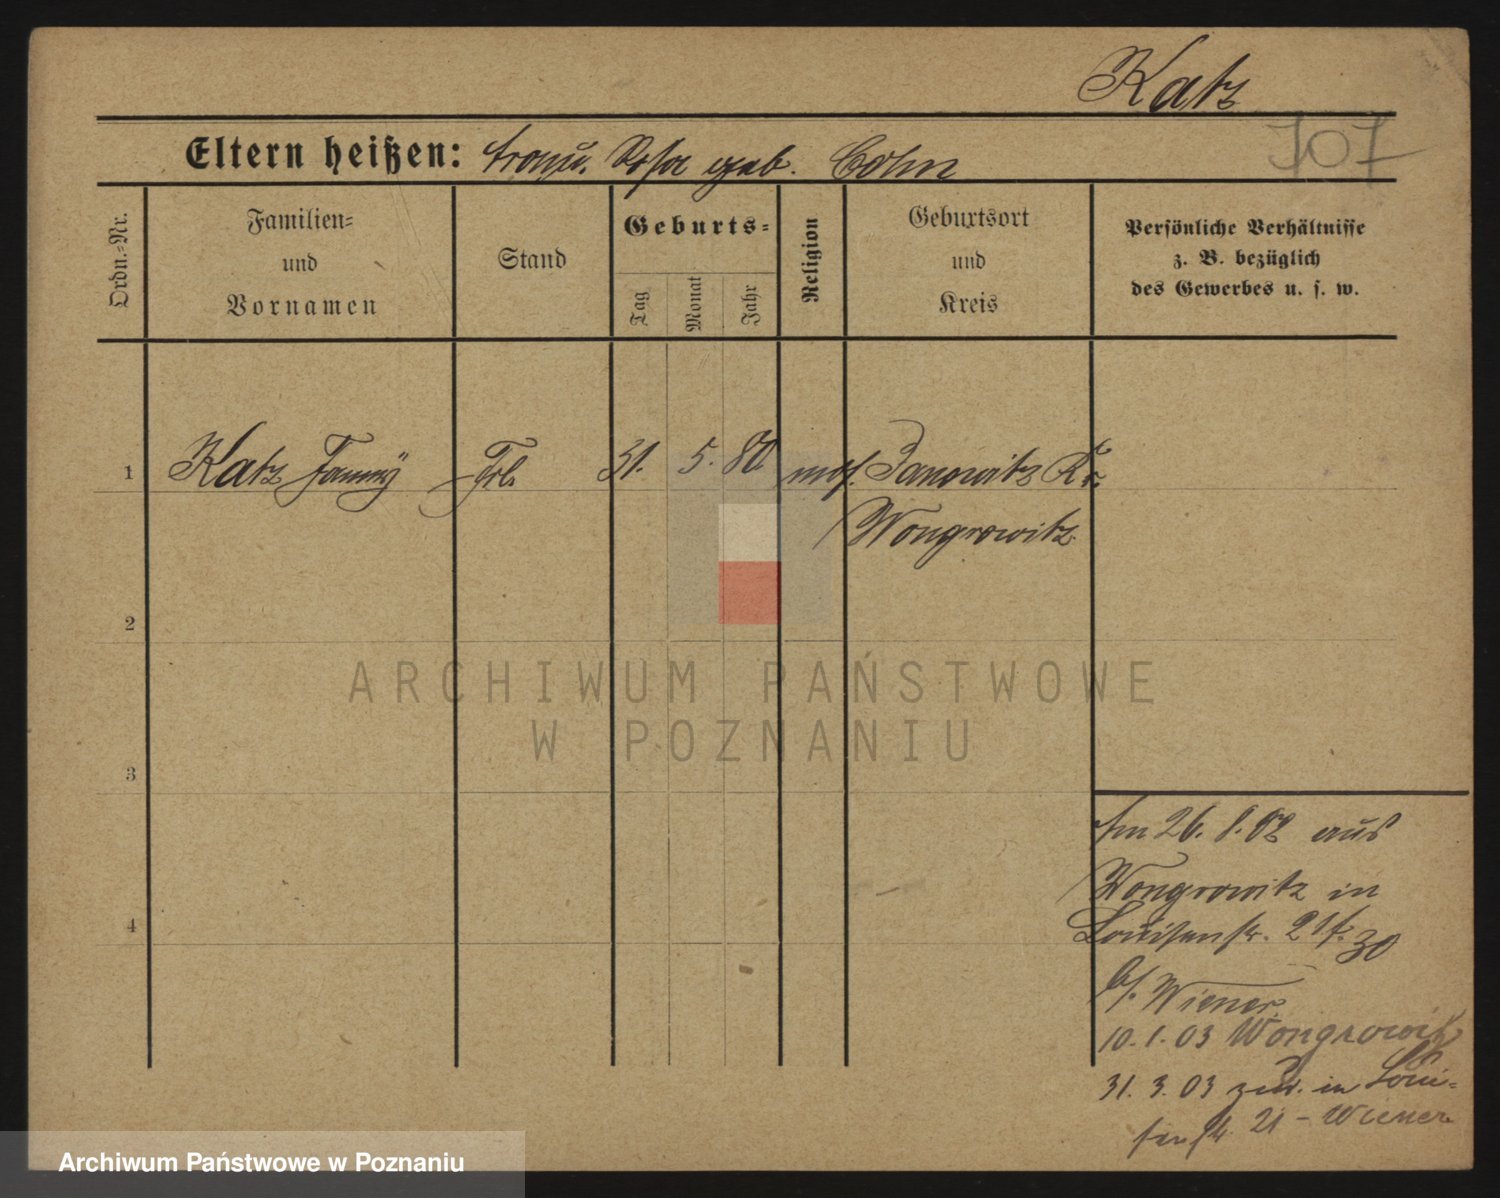 Katz
707
Eltern heißen: Rosa geb. Cohn
Ordn.-Nr.
Familien-
und
Vornamen
Stand
Geburts-
Tag
Monat
Jahr
Religion
Geburtsort
und
Kreis
Persönliche Verhältnisse
z. B. bezüglich
des Gewerbes u. s. w.
1 Katz Fanny Frl. 31. 5. 80 mos. Janowitz Kr.
Wongrowitz
2
3
4
ARCHIWUM PAŃSTWOWE
W POZNANIU
Am 26. 8. 02 aus
Wongrowitz in
Louisenstr. 21
30
b/. Wiener
10. 1. 03 Wongrowitz
31. 3. 03 zur. in Loui-
senstr. 21 - Wiener
Archiwum Państwowe w Poznaniu